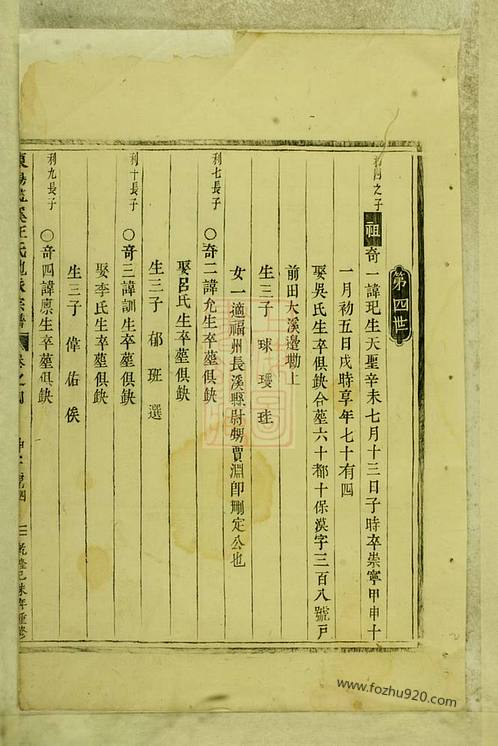 第四世
之子
祖 奇一諱玘生天聖辛未七月十三日子時卒崇寧甲申十
一月初五日戌時享年七十有四
娶吳氏生卒俱缺合墓六十都十保漠字三百八號戸
前田大溪邉塝上
生三子 球 璦 珪
女一適福州長溪縣尉甥賈淵即刪定公也
利七長子
〇奇二諱允生卒墓俱缺
娶呂氏生卒墓俱缺
生三子 郁 班 選
利十長子
〇奇三諱訓生卒墓俱缺
娶李氏生卒墓俱缺
生三子 偉 佑 俟
利九長子
〇奇四諱㢘生卒墓俱缺
王氏宗譜 卷之四
www.fozhu920.com